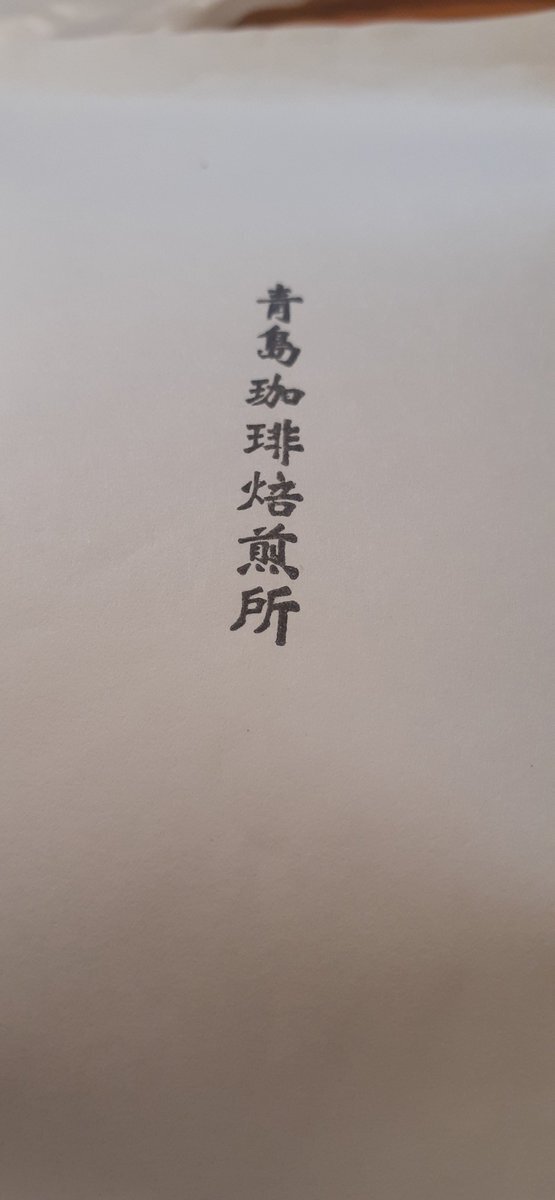 青島珈琲焙煎所